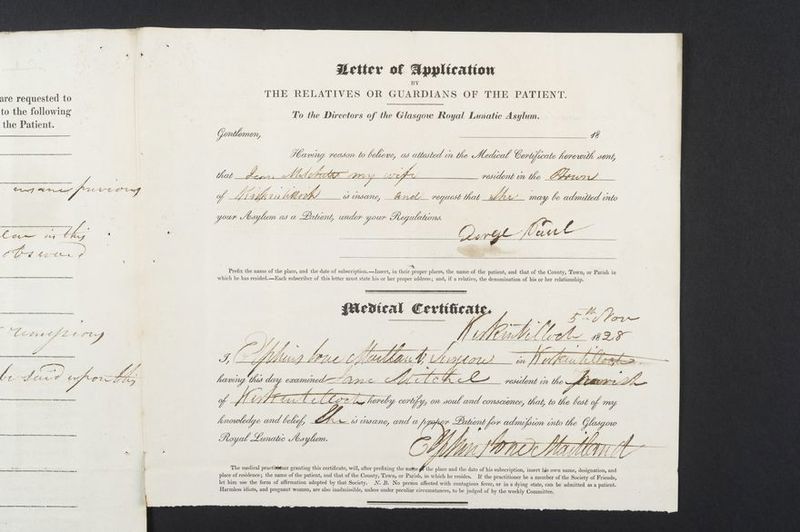 are requested to
to the following
the Patient.
insane previous
in this
observed
remissions
be said upon this
Letter of Application
BY
THE RELATIVES OR GUARDIANS OF THE PATIENT.
To the Directors of the Glasgow Royal Lunatic Asylum.
Gentlemen, 18
Having reason to believe, as attested in the Medical Certificate herewith sent,
that Jean Mitchell my wife resident in the Town
of Kirkintilloch is insane, and request that She may be admitted into
your Asylum as a Patient, under your Regulations.
George Paul
Prefix the name of the place, and the date of subscription.—Insert, in their proper places, the name of the patient, and that of the County, Town, or Parish in
which he has resided.—Each subscriber of this letter must state his or her proper address; and, if a relative, the denomination of his or her relationship.
Medical Certificate.
5th Nov
Kirkintilloch 1828
I, Maitland, Surgeon in Kirkintilloch
having this day examined Jane Mitchel resident in the Parish
of Kirkintilloch hereby certify, on soul and conscience, that, to the best of my
knowledge and belief, She is insane, and a proper Patient for admission into the Glasgow
Royal Lunatic Asylum.
Maitland
The medical practitioner granting this certificate, will, after prefixing the name of the place and the date of his subscription, insert his own name, designation, and
place of residence; the name of the patient, and that of the County, Town, or Parish, in which he resides. If the practitioner be a member of the Society of Friends,
let him use the form of affirmation adopted by that Society. N. B. No person affected with contagious fever, or in a dying state, can be admitted as a patient.
Harmless idiots, and pregnant women, are also inadmissible, unless under peculiar circumstances, to be judged of by the weekly Committee.